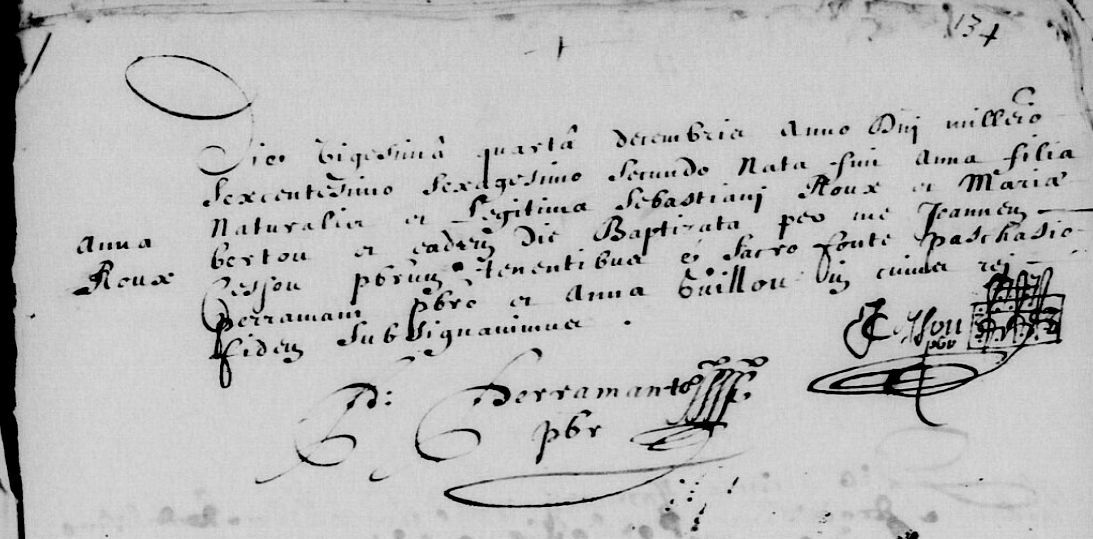 134
Die Vigesimâ quartâ decembris Anno Dnj millēio
Sexcentesimo Sexagesimo Secundo Nata fuit Anna filia
Naturalis et Legitima Sebastianj Roux et Mariæ
Anna
Roux
bertou et eadem die Baptizata per me Joannem
Cessou pbrum tenentibus e sacro fonte paschasio
perramant pbro et Anna Guillou In cuius rej
fidem subsignavimus .
J Cessou
pbr
P: perramant
pbr